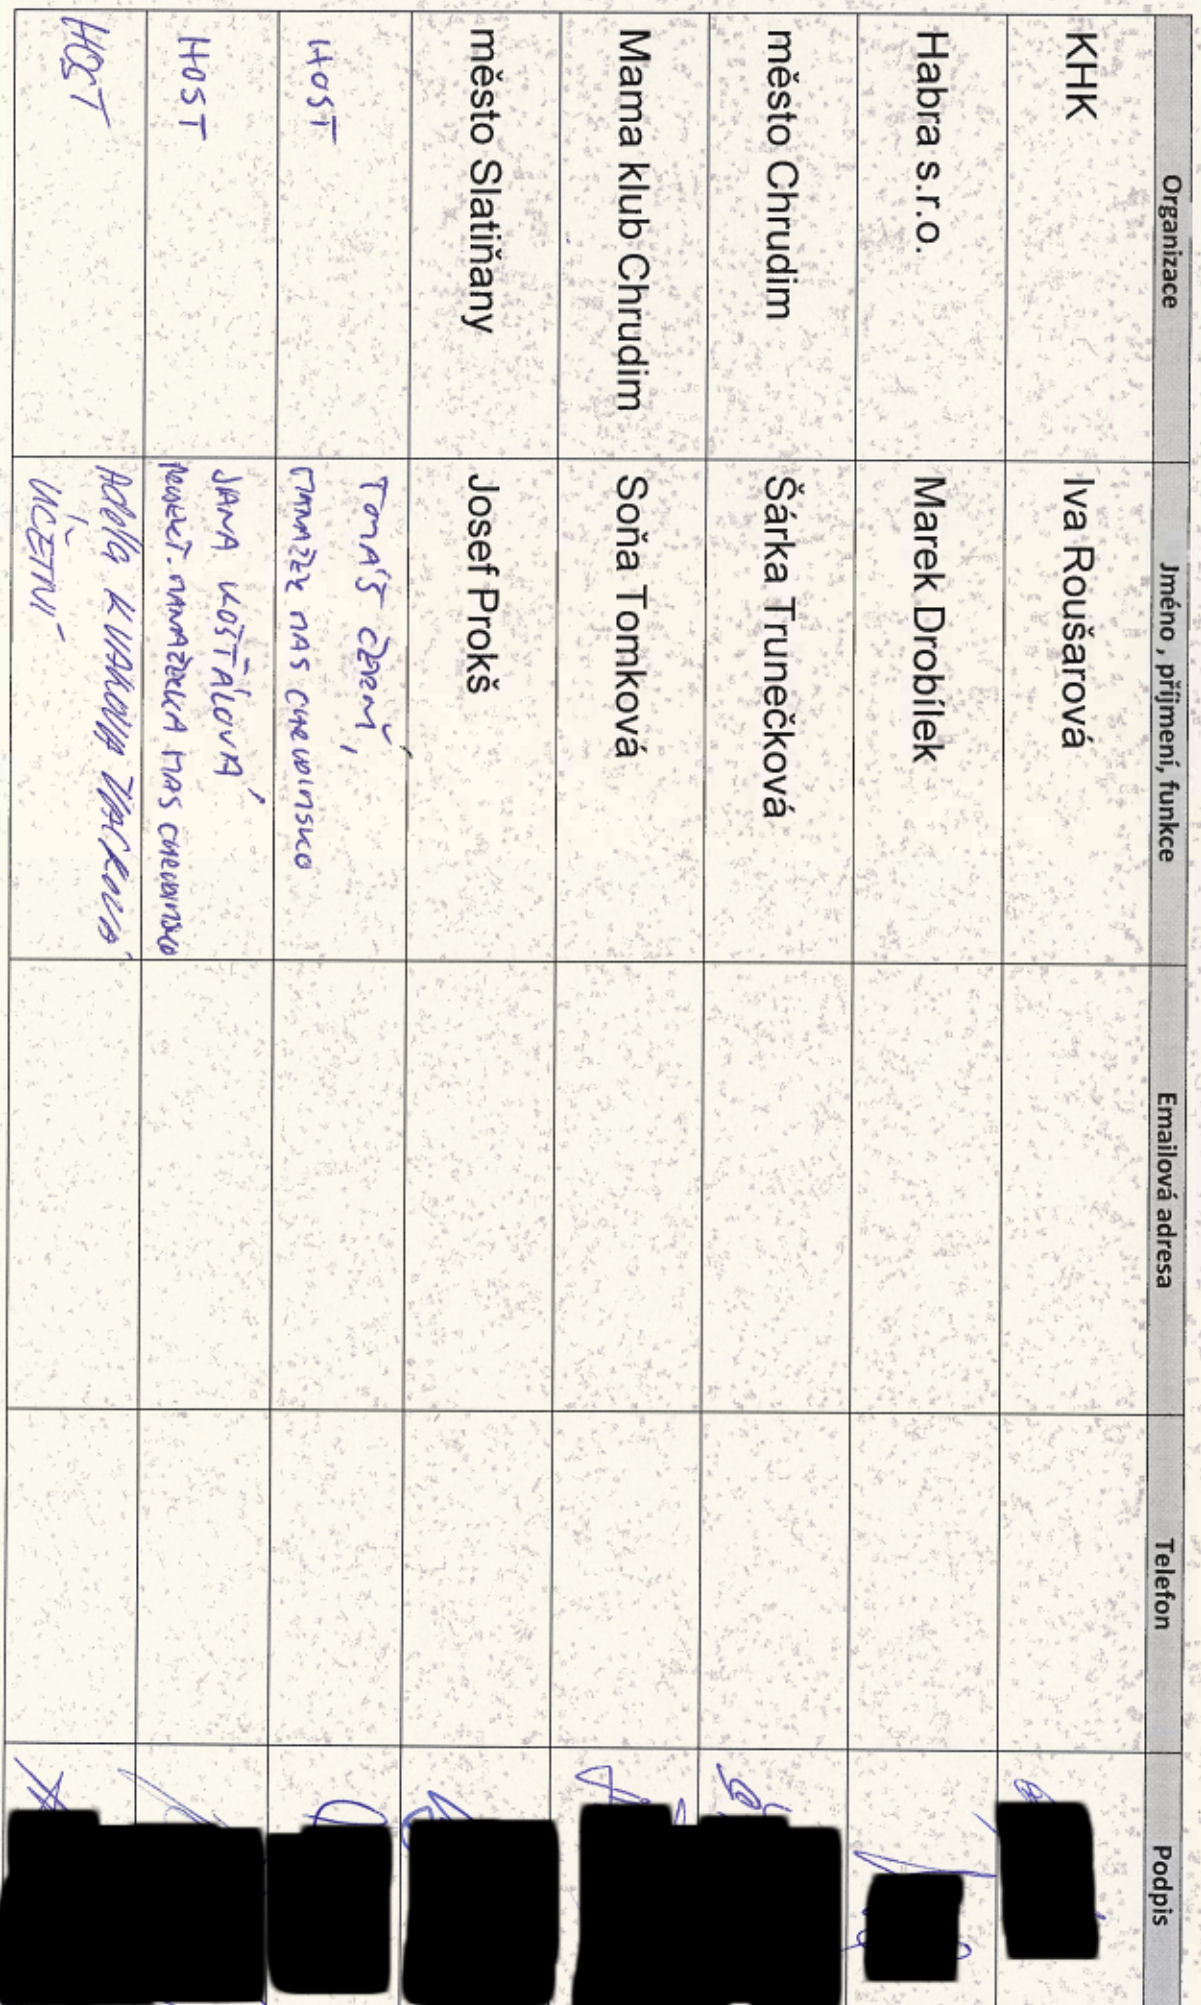 Organizace Jméno , příjmení, funkce Emailová adresa Telefon Podpis
KHK Iva Roušarová
Habra s.r.o. Marek Drobílek
město Chrudim Šárka Trunečková
Mama klub Chrudim Soňa Tomková
město Slatiňany Josef Prokš
HOST TOMÁŠ ČERNÝ,
MANAŽER MAS CHRUDIMSKO
HOST JANA KOŠŤÁLOVÁ
PROJEKT. MANAŽERKA MAS CHRUDIMSKO
HOST Adéla
ÚČETNÍ